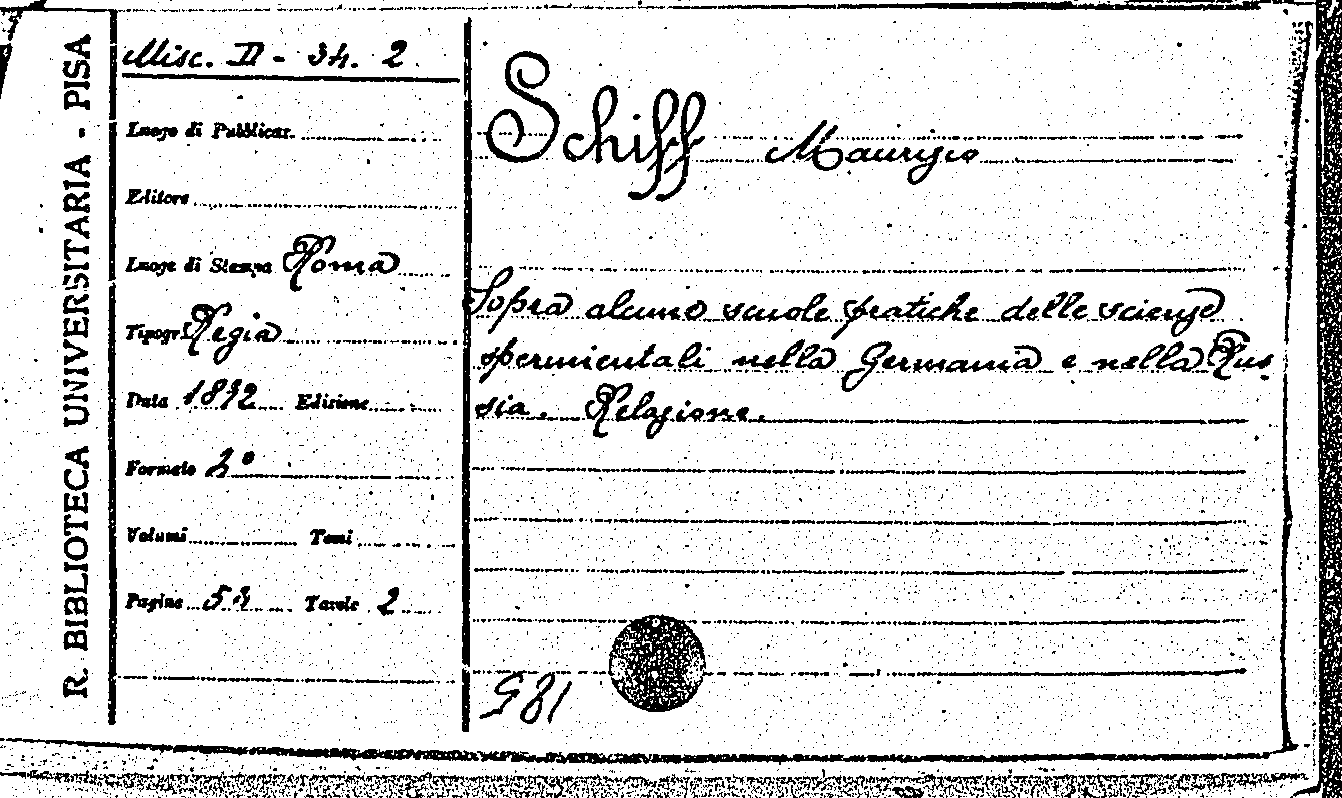 R. BIBLIOTECA UNIVERSITARIA - PISA
Misc. II - 34. 2.
Luogo di Pubblicaz.
Editore
Luogo di Stampa Roma
Tipogr. Regia
Data 1872 Edizione
Formato 2°
Volumi Tomi
Pagine 53 Tavole 2
Schiff Maurizio
Sopra alcune scuole pratiche delle scienze
sperimentali nella Germania e nella Rus
sia. Relazione.